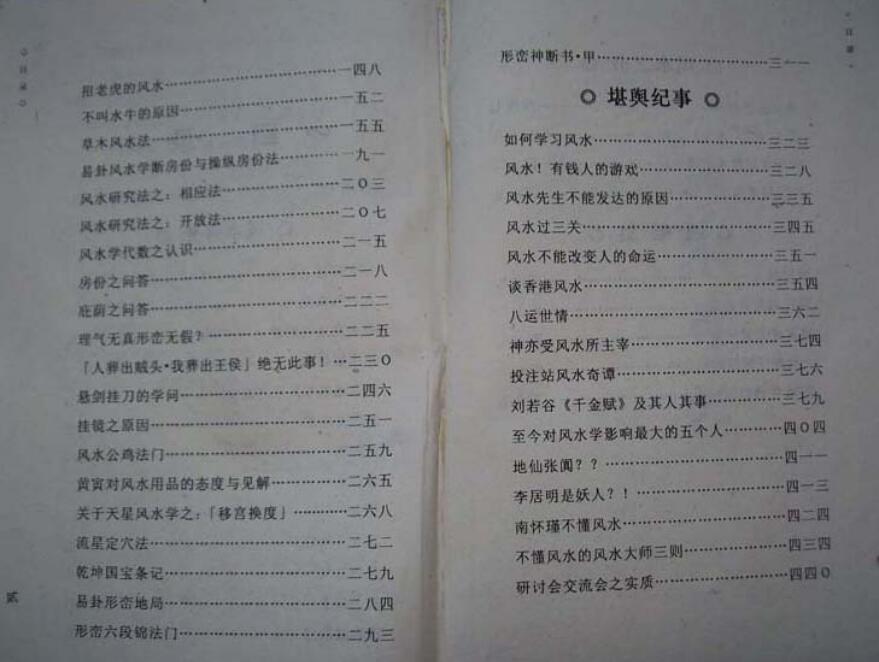 招老虎的风水…………………一四八
不叫水牛的原因………………一五二
草木风水法……………………一五五
易卦风水学断房份与操纵房份法………一九一
风水研究法之：相应法…………二〇三
风水研究法之：开放法…………二〇七
风水学代数之认识………………二一五
房份之问答……………………二一八
庇荫之问答……………………二二二
理气无真形峦无假？……………二二五
「人葬出贼头·我葬出王侯」绝无此事！…二三〇
悬剑挂刀的学问………………二四六
挂镜之原因……………………二五一
风水公鸡法门…………………二五九
黄寅对风水用品的态度与见解………二六五
关于天星风水学之：「移宫换度」………二六八
流星定穴法……………………二七二
乾坤国宝条记…………………二七九
易卦形峦地局…………………二八四
形峦六段锦法门………………二九三
贰
目录
形峦神断书·甲………………三一一
堪舆纪事
如何学习风水…………………三二三
风水！有钱人的游戏……………三二八
风水先生不能发达的原因…………三三五
风水过三关……………………三四五
风水不能改变人的命运…………三五一
谈香港风水……………………三五四
八运世情………………………三六二
神亦受风水所主宰………………三七四
投注站风水奇谭………………三七六
刘若谷《千金赋》及其人其事………三七九
至今对风水学影响最大的五个人………四〇四
地仙张闻？？…………………四一一
李居明是妖人？！………………四一三
南怀瑾不懂风水………………四二四
不懂风水的风水大师三则…………四三四
研讨会交流会之实质……………四四〇